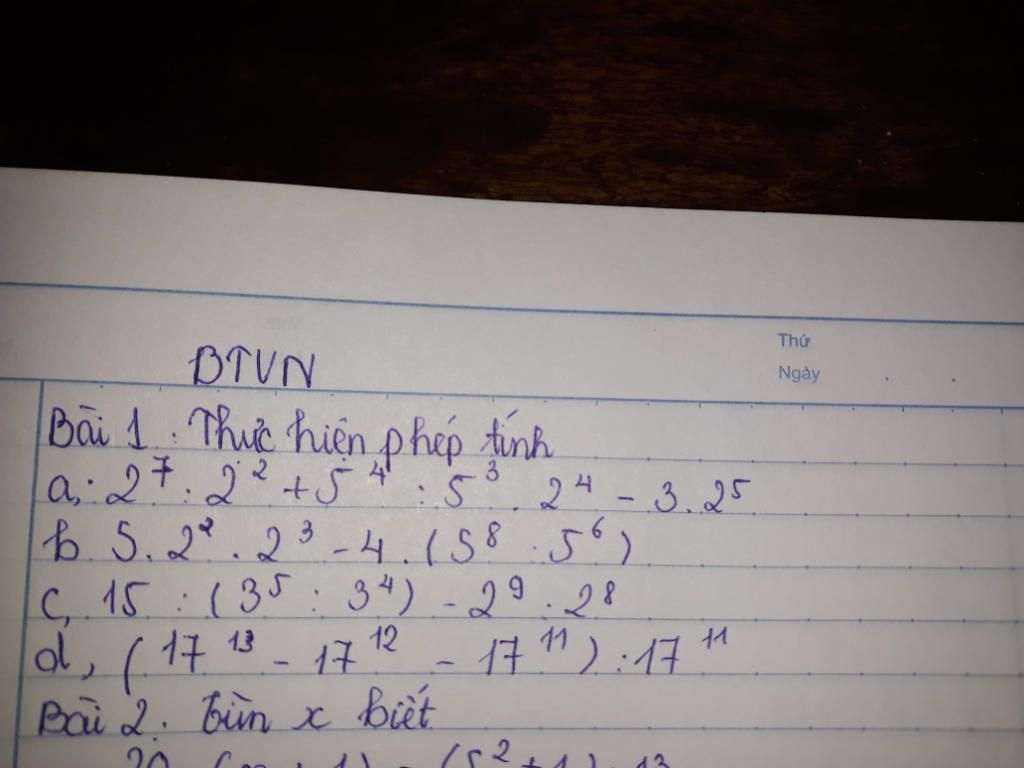 Thứ
Ngày
BTVN
Bài 1 : Thực hiện phép tính
a, : 2⁷ : 2² + 5⁴ : 5³ . 2⁴ - 3 . 2⁵
b 5 . 2² . 2³ - 4 . (5⁸ : 5⁶)
c, 15 : (3⁵ : 3⁴) - 2⁹ : 2⁸
d, (17¹³ - 17¹² - 17¹¹) : 17¹¹
Bài 2 : tìm x biết